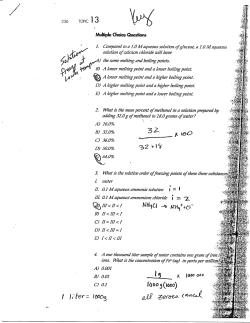 236 TOPIC 13
Key
Multiple Choice Questions
Solution
Freeze at
Lower temps
1. Compared to a 1.0 M aqueous solution of glucose, a 1.0 M aqueous
solution of calcium chloride will have
A) the same melting and boiling points.
B) A lower melting point and a higher boiling point.
C) A lower melting point and a lower boiling point.
D) A higher melting point and a higher boiling point.
E) A higher melting point and a lower boiling point.
2. What is the mass percent of methanol in a solution prepared by
adding 32.0 g of methanol to 18.0 grams of water?
A) 16.0%
B) 32.0%
C) 36.0%
D) 50.0%
E) 64.0%
32
32 + 18
x 100
3. What is the relative order of freezing points of these three substances
I. water
II. 0.1 M aqueous ammonia solution i = 1
III. 0.1 M aqueous ammonium chloride i = 2
A) III < II < I
4. A one thousand liter sample of water contains one gram of
ions. What is the concentration of
A) 0.001
B) 0.01
C) 0.1
1g
1000g(1000)
x 1000 000
1 liter = 1000g
all zeroes cancel